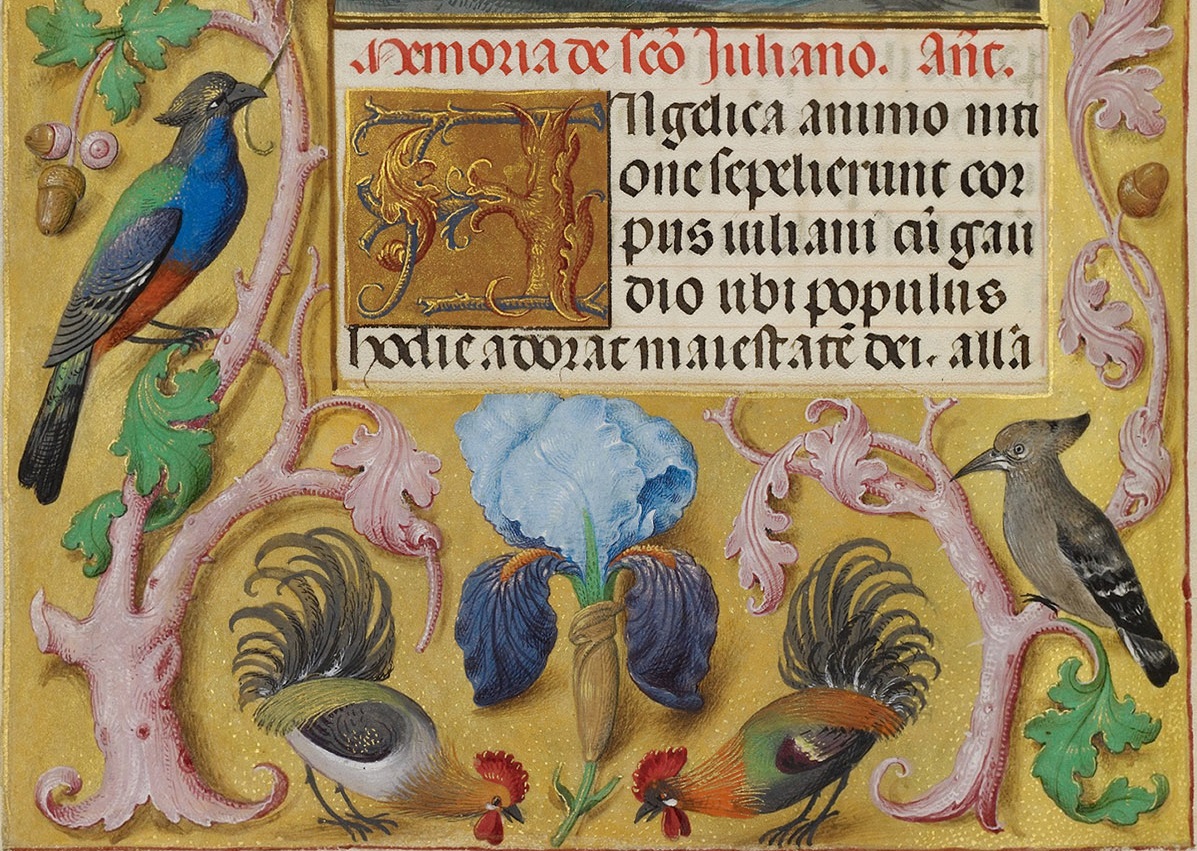 Memoria de scō Iuliano. Añt.
ANgelica animo niti
one sepelierunt cor
pus iuliani cū gau
dio ubi populus
hodie adorat maiestatē dei. allā